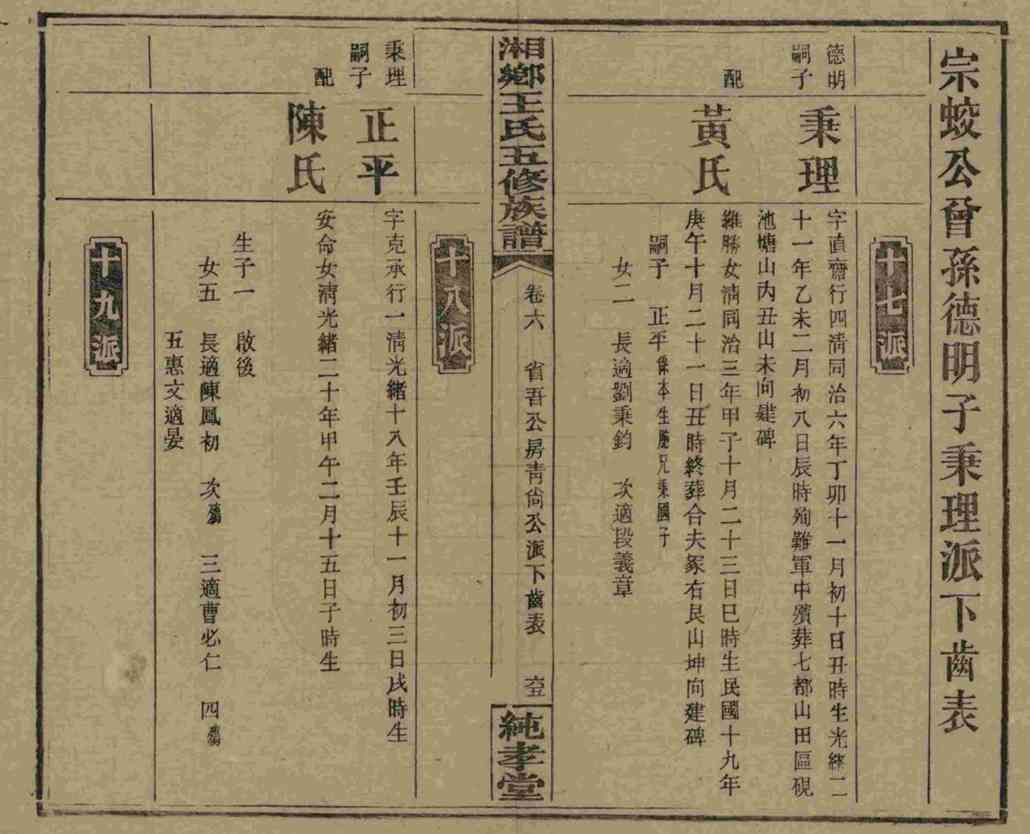 宗蛟公曾孫德明子秉理派下齒表
十七派
德明
嗣子
秉理
字直齋行四清同治六年丁卯十一月初十日丑時生光緒二
十一年乙未二月初八日辰時殉難軍中殯葬七都山田區硯
池塘山丙丑山未向建碑
配
黃氏
維勝女清同治三年甲子十月二十三日巳時生民國十九年
庚午十月二十一日丑時終葬合夫冢右艮山坤向建碑
嗣子 正平係本生胞兄秉國子
女二 長適劉秉鈞 次適段義章
湘鄉王氏五修族譜
卷六 省吾公房青尙公派下齒表
純孝堂
十八派
秉理
嗣子
正平
字克承行一清光緒十八年壬辰十一月初三日戌時生
配
陳氏
安命女清光緒二十年甲午二月十五日子時生
生子一 啟後
女五 長適陳鳳初 次殤 三適曹必仁 四殤
五惠文適晏
十九派